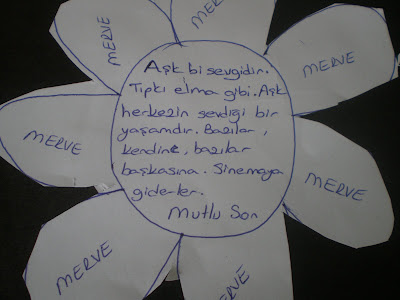 MERVE
MERVE
MERVE
MERVE
MERVE
MERVE
MERVE
Aşk bi sevgidir.
Tıpkı elma gibi. Aşk
herkezin sevdiği bir
yaşamdır. Bazılar,
kendine, bazılar
başkasına. Sinemaya
giderler.
Mutlu Son